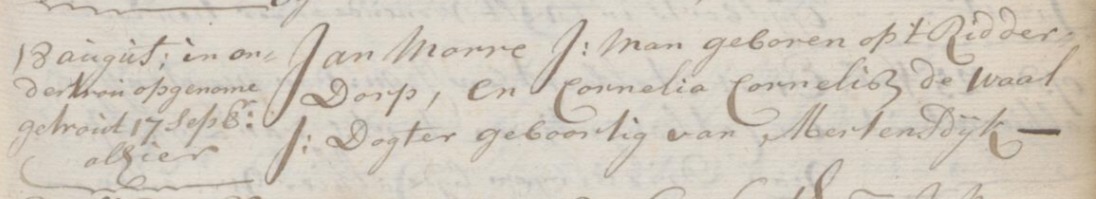 18 august; in on=
dertrou opgenome
getrout 17 Sepb:
alhier
Jan Morre J: Man geboren op 't Ridder=
Dorp, En Cornelia Cornelisz de Waal
J: Dogter geboortig van Mertensdijk —